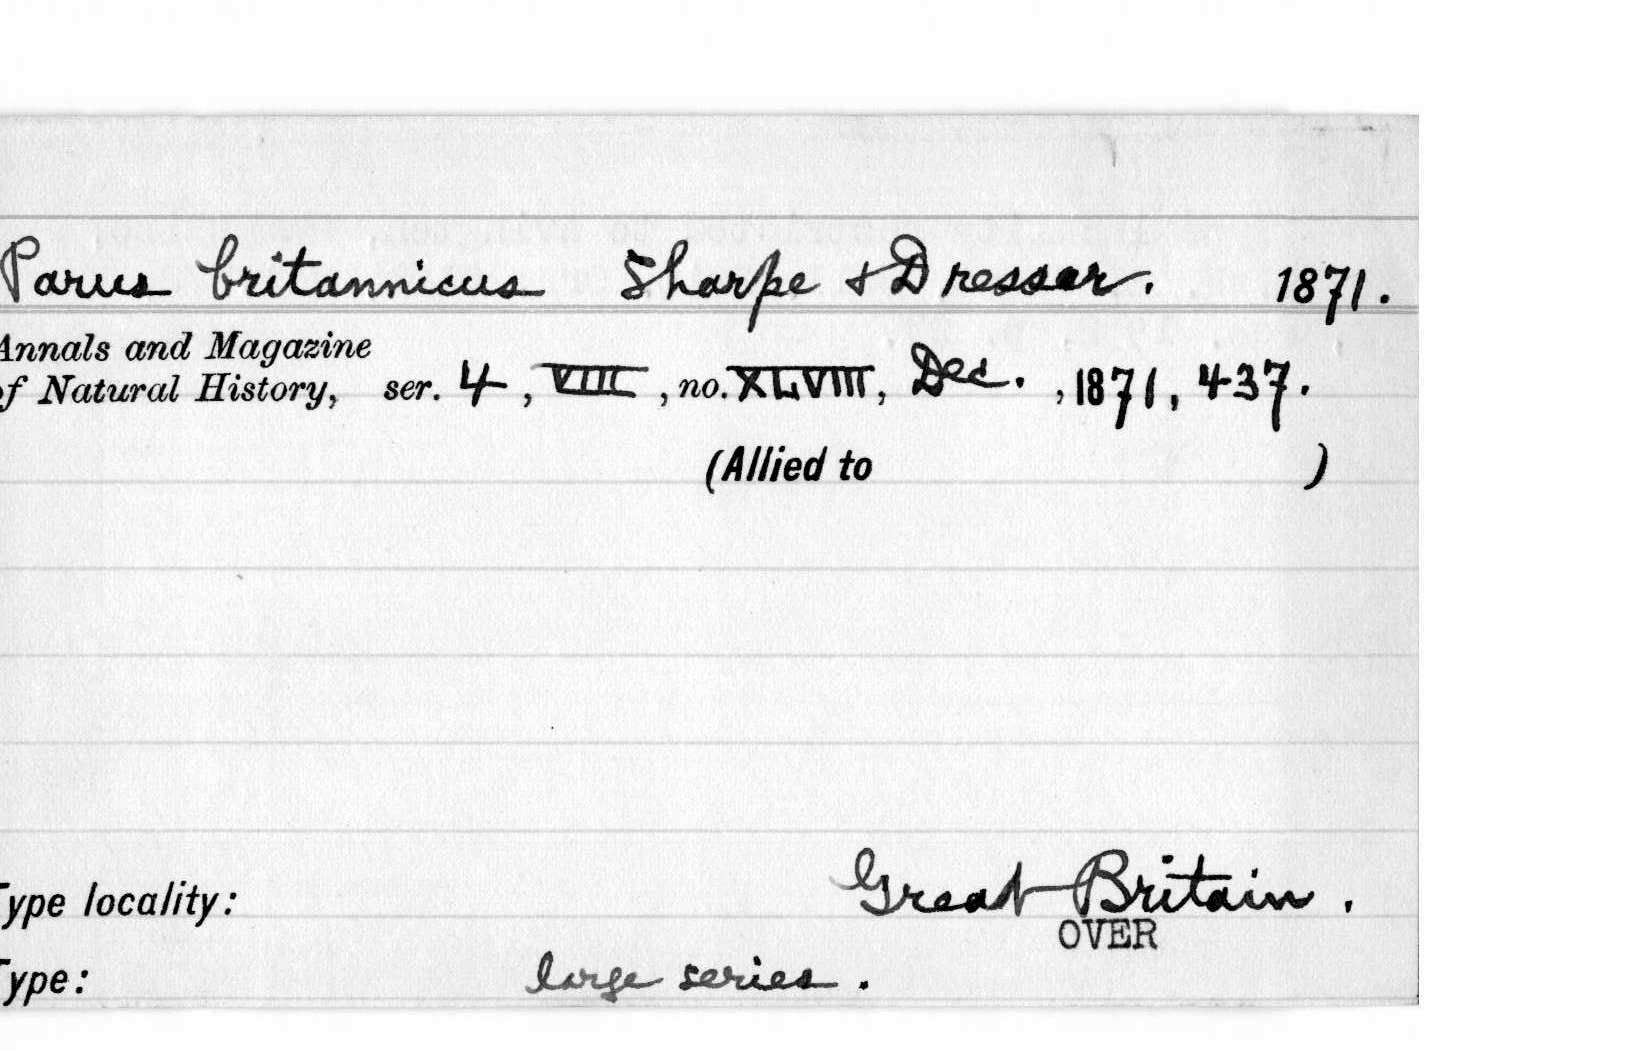 Parus britannicus Sharpe & Dresser. 1871.
Annals and Magazine
of Natural History, ser. 4, VIII, no. XLVIII, Dec. , 1871, 437.
(Allied to )
Type locality: Great Britain.
OVER
Type: large series.